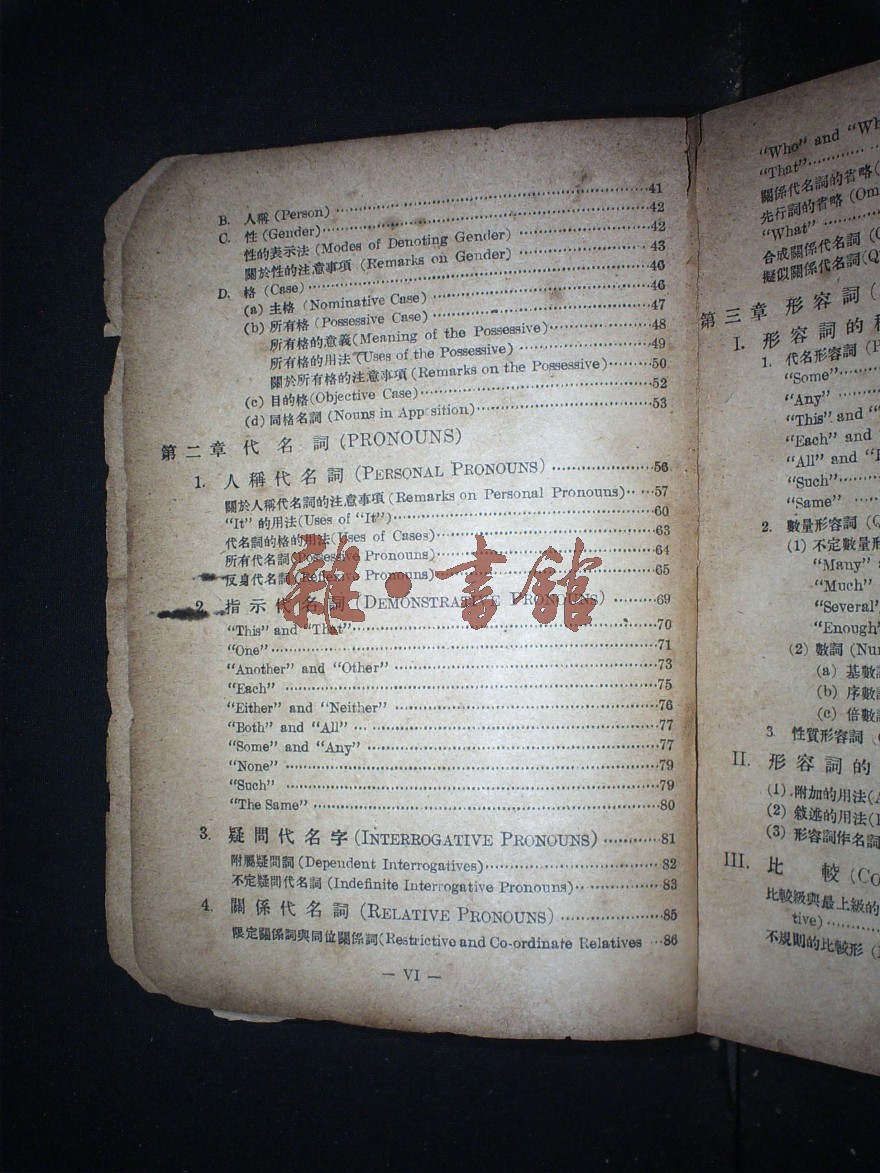 B. 人稱 (Person) ……41
C. 性 (Gender) ……42
性的表示法 (Modes of Denoting Gender) ……42
關於性的注意事項 (Remarks on Gender) ……43
D. 格 (Case) ……46
(a) 主格 (Nominative Case) ……46
(b) 所有格 (Possessive Case) ……47
所有格的意義 (Meaning of the Possessive) ……48
所有格的用法 (Uses of the Possessive) ……49
關於所有格的注意事項 (Remarks on the Possessive) ……50
(c) 目的格 (Objective Case) ……52
(d) 同格名詞 (Nouns in Apposition) ……53
第二章 代名詞 (PRONOUNS)
1. 人稱代名詞 (PERSONAL PRONOUNS) ……56
關於人稱代名詞的注意事項 (Remarks on Personal Pronouns) ……57
“It” 的用法 (Uses of “It”) ……60
代名詞的格的用法 (Uses of Cases) ……63
所有代名詞 (Possessive Pronouns) ……64
反身代名詞 (Reflexive Pronouns) ……65
2. 指示代名詞 (DEMONSTRATIVE PRONOUNS) ……69
“This” and “That” ……70
“One” ……71
“Another” and “Other” ……73
“Each” ……75
“Either” and “Neither” ……76
“Both” and “All” ……77
“Some” and “Any” ……77
“None” ……79
“Such” ……79
“The Same” ……80
3. 疑問代名字 (INTERROGATIVE PRONOUNS) ……81
附屬疑問詞 (Dependent Interrogatives) ……82
不定疑問代名詞 (Indefinite Interrogative Pronouns) ……83
4. 關係代名詞 (RELATIVE PRONOUNS) ……85
限定關係詞與同位關係詞 (Restrictive and Co-ordinate Relatives ……86
— VI —
雜·書館
“Who” and “Wh
“That” ……
關係代名詞的省略 (
先行詞的省略 (Om
“What” ……
合成關係代名詞 (
擬似關係代名詞 (Q
第三章 形容詞 (
I. 形容詞的
1. 代名形容詞 (P
“Some” ……
“Any” ……
“This” and “
“Each” and
“All” and “
“Such” ……
“Same” ……
2. 數量形容詞 (Q
(1) 不定數量形
“Many”
“Much”
“Several”
“Enough”
(2) 數詞 (Nu
(a) 基數
(b) 序數
(c) 倍數
3. 性質形容詞 (
II. 形容詞的
(1) 附加的用法 (A
(2) 敘述的用法 (
(3) 形容詞作名詞
III. 比較 (Co
比較級與最上級的
tive) ……
不規則的比較形 (